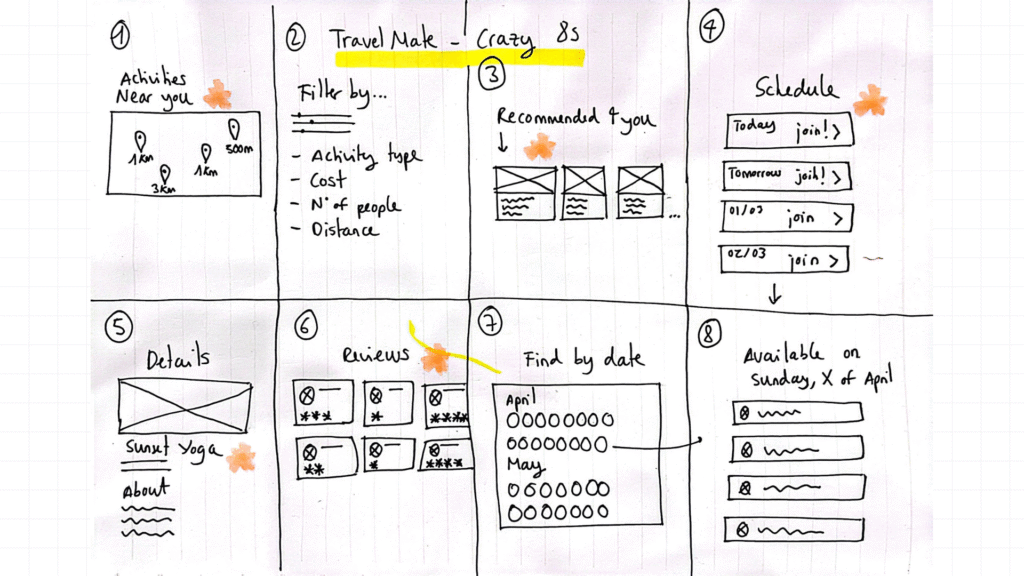 Travel Mate - Crazy 8s
1
Activities
Near you
1Km
3Km
1Km
500m
2
Filter by...
- Activity type
- Cost
- N° of people
- Distance
3
Recommended 4 you
...
4
Schedule
Today join! >
Tomorrow join! >
01/03 join >
02/03 join >
5
Details
Sunset Yoga
About
6
Reviews
7
Find by date
April
May
8
Available on
Sunday, X of April